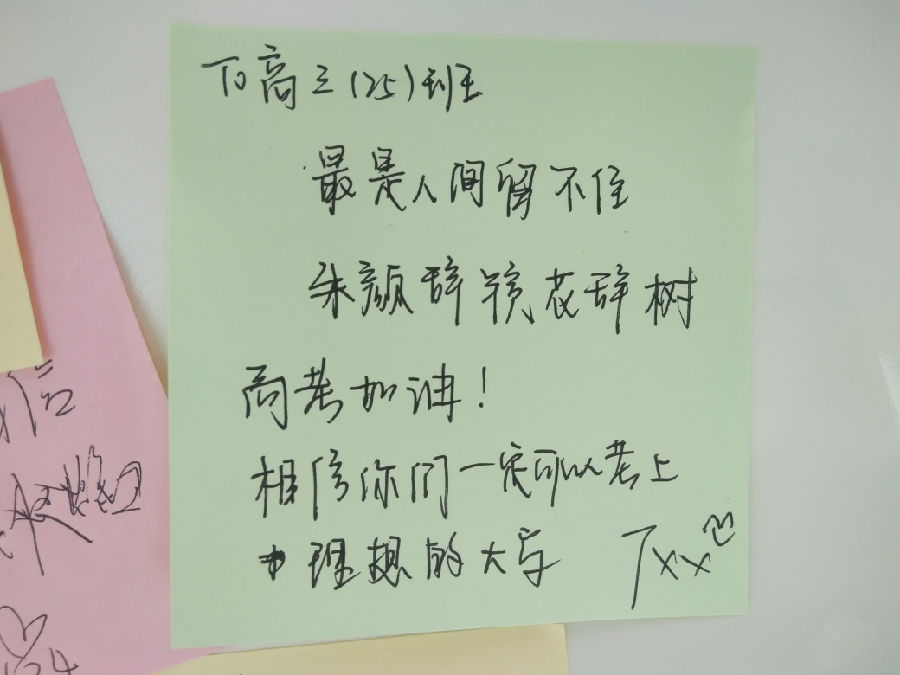 To高三(25)班
最是人间留不住
朱颜辞镜花辞树
高考加油!
相信你们一定可以考上
理想的大学
信